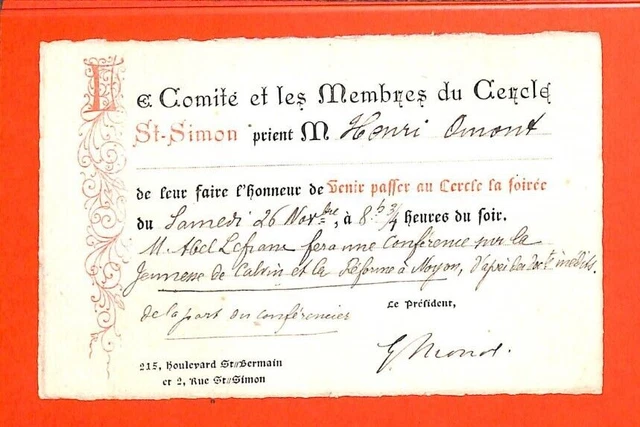 Le Comité et les Membres du Cercle
St-Simon prient M Henri Omont
de leur faire l'honneur de Venir passer au Cercle la soirée
du Samedi 26 Novbre, à 8h 3/4 heures du soir.
M. Abel Lefranc fera une Conférence sur la
Jeunesse de Calvin et la Réforme à Noyon, d'après des docts inédits.
de la part du conférencier
Le Président,
G. Monod.
215, Boulevard St-Germain
et 2, Rue St-Simon